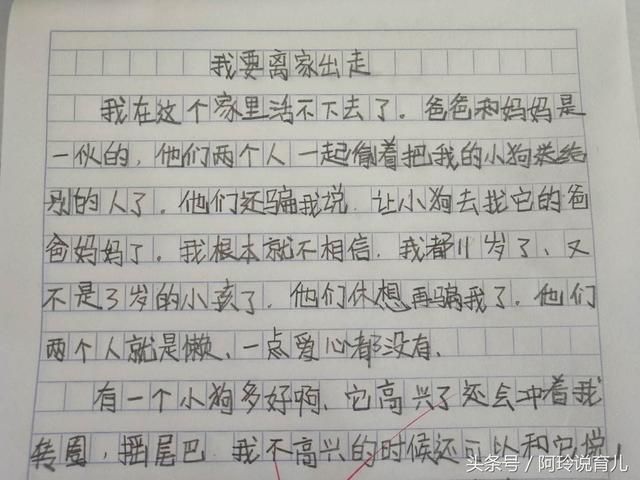 我要离家出走
我在这个家里活不下去了。爸爸和妈妈是
一伙的,他们两个人一起偷着把我的小狗送给
别的人了。他们还骗我说 让小狗去找它的爸
爸妈妈了。我根本就不相信,我都11岁了、又
不是3岁的小孩了,他们休想再骗我了。他们
两个人就是懒、一点爱心都没有,
有一个小狗多好啊、它高兴了还会冲着我
转圈,摇尾巴 我不高兴的时候还可以和它说
头条号/阿玲说育儿